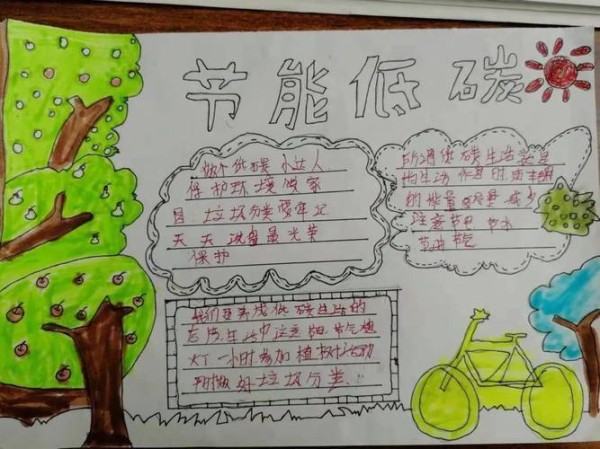 节能低碳
做个低碳小达人
保护环境 家
园 垃圾分类要牢记
天天 最光荣
保护
所谓低碳生活就是
指生活作息时所耗用
的能量要尽量减少
注意节电 节水
节油 节气
我们要养成低碳生活的
态度 生活中注意节电 节气 熄
灯一小时 参加植树活动
做好垃圾分类.